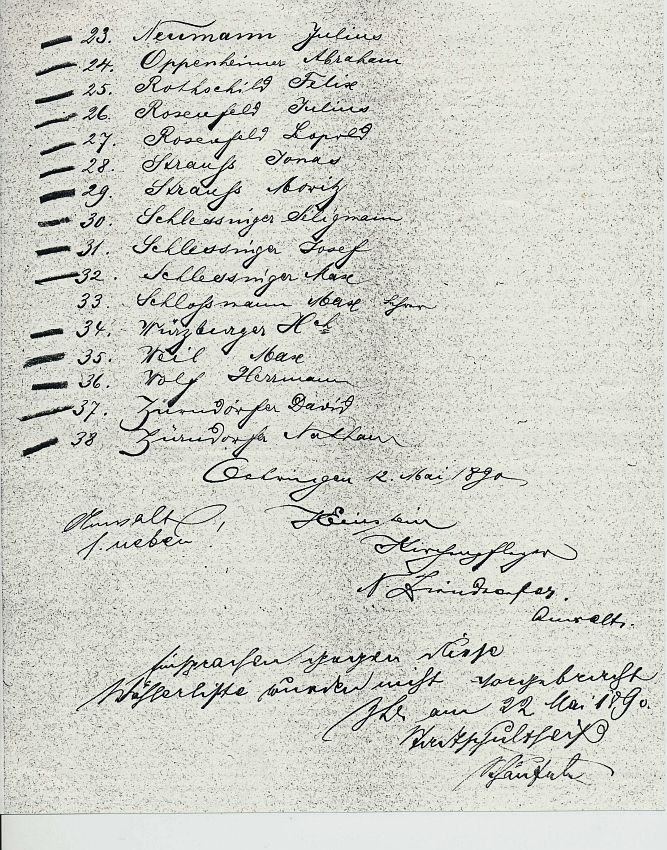 23. Neumann Julius
24. Oppenheimer Abraham
25. Rothschild Felix
26. Rosenfeld Julius
27. Rosenfeld Leopold
28. Strauß Jonas
29. Strauß Moritz
30. Schlessinger Seligmann
31. Schlessinger Josef
32. Schlessinger Max
33 Schloßmann Max Lehrer
34. Würzburger Hch
35. Weil Max
36. Wolf Herrmann
37. Zürndörfer David
38 Zürndorfer Nathan
Oehringen 12. Mai 1890
Anwalt
s. neben!
HEinstein
Kirchenpfleger
N. Zürndorfer.
Anwalts.
Einsprachen gegen diese
Wählerliste wurden nicht vorgebracht
am 22 Mai 1890.
Stadtschultheiß
Schäufele